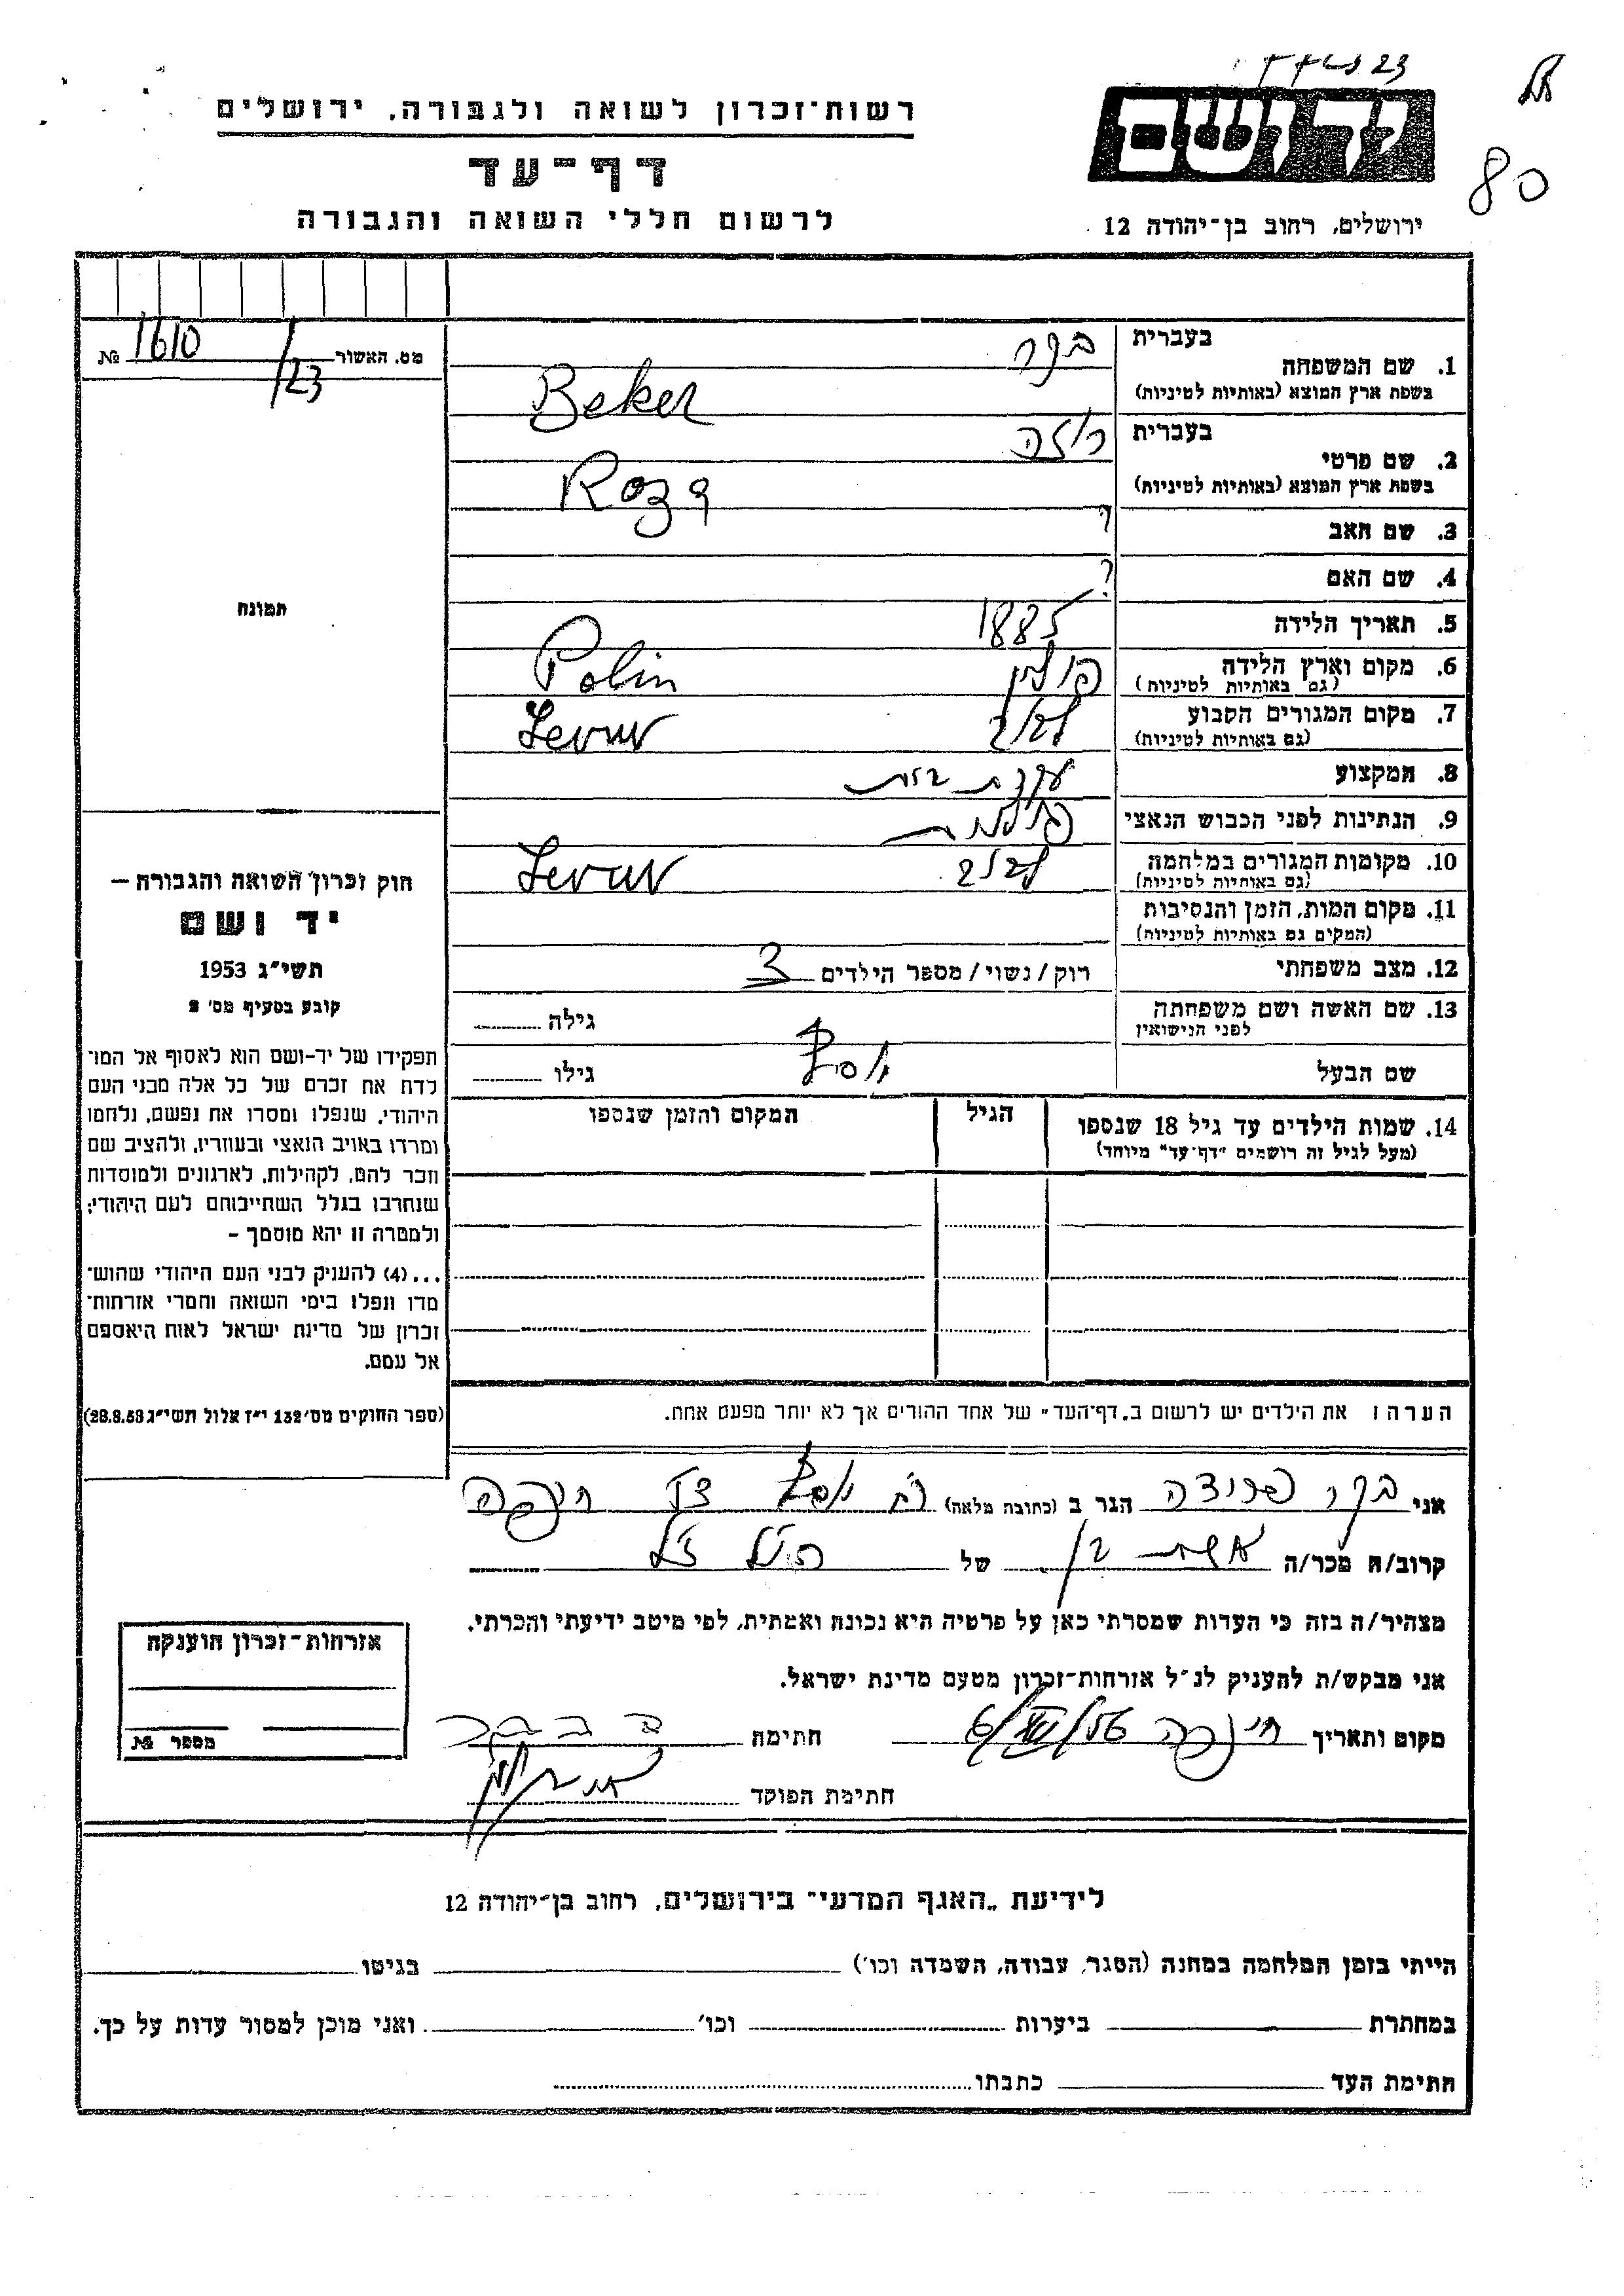 80
יד ושם
ירושלים, רחוב בן־יהודה 12
רשות־זכרון לשואה ולגבורה, ירושלים
דף־עד
לרשום חללי השואה והגבורה
מס. האשור № 1610/23
1. שם המשפחה בעברית בקר
בשפת ארץ המוצא (באותיות לטיניות) Beker
2. שם פרטי בעברית רוזה
בשפת ארץ המוצא (באותיות לטיניות) Roza
3. שם האב ?
4. שם האם ?
5. תאריך הלידה 1885
6. מקום וארץ הלידה פולין Polin
(גם באותיות לטיניות)
7. מקום המגורים הקבוע לבוב Levuv
(גם באותיות לטיניות)
8. המקצוע עקרת בית
9. הנתינות לפני הכבוש הנאצי פולנית
10. מקומות המגורים במלחמה לבוב Levuv
(גם באותיות לטיניות)
11. מקום המות, הזמן והנסיבות
(המקום גם באותיות לטיניות)
12. מצב משפחתי רוק/נשוי/מספר הילדים 3
13. שם האשה ושם משפחתה גילה
לפני הנישואין
שם הבעל יוסף גילו
14. שמות הילדים עד גיל 18 שנספו הגיל המקום והזמן שנספו
(מעל לגיל זה רושמים "דף־עד" מיוחד)
הערה: את הילדים יש לרשום ב"דף־העד" של אחד ההורים אך לא יותר מפעם אחת.
תמונה
חוק זכרון השואה והגבורה —
יד ושם
תשי"ג 1953
קובע בסעיף מס' 2
תפקידו של יד-ושם הוא לאסוף אל המו־
לדת את זכרם של כל אלה מבני העם
היהודי, שנפלו ומסרו את נפשם, נלחמו
ומרדו באויב הנאצי ובעוזריו, ולהציב שם
וזכר להם, לקהילות, לארגונים ולמוסדות
שנחרבו בגלל השתייכותם לעם היהודי;
ולמטרה זו יהא מוסמך –
...(4) להעניק לבני העם היהודי שהוש־
מדו ונפלו בימי השואה והמרי אזרחות־
זכרון של מדינת ישראל לאות היאספם
אל עמם.
(ספר החוקים מס' 132 י"ז אלול תשי"ג 28.8.53)
אני בקר פרידה הגר ב (כתובת מלאה) רח יוסף חיפה
קרוב/ה מכר/ה אשת בן של הנ"ל
מצהיר/ה בזה כי העדות שמסרתי כאן על פרטיה היא נכונה ואמתית, לפי מיטב ידיעתי והכרתי.
אני מבקש/ת להעניק לנ"ל אזרחות-זכרון מטעם מדינת ישראל.
מקום ותאריך חיפה חתימה
חתימת הפוקד
אזרחות־זכרון הוענקה
מספר №
לידיעת „האגף המדעי" בירושלים, רחוב בן־יהודה 12
הייתי בזמן המלחמה במחנה (הסגר, עבודה, השמדה וכו') בגיטו
במחתרת ביערות וכו' ואני מוכן למסור עדות על כך.
חתימת העד כתבתו